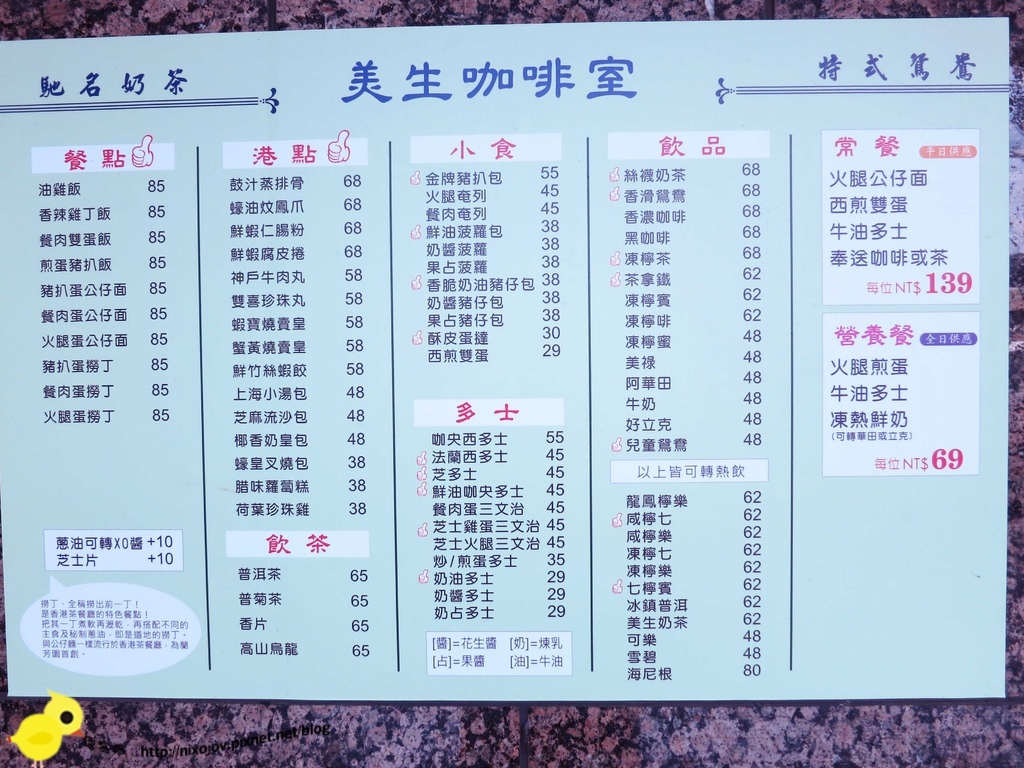 馳名奶茶
美生咖啡室
特式鴛鴦
餐點
油雞飯 85
香辣雞丁飯 85
餐肉雙蛋飯 85
煎蛋豬扒飯 85
豬扒蛋公仔面 85
餐肉蛋公仔面 85
火腿蛋公仔面 85
豬扒蛋撈丁 85
餐肉蛋撈丁 85
火腿蛋撈丁 85
蔥油可轉XO醬 +10
芝士片 +10
撈丁、全稱撈出前一丁！
是香港茶餐廳的特色餐點！
把其一丁煮軟再瀝乾，再搭配不同的
主食及秘制蔥油，即是道地的撈丁。
與公仔麵一樣流行於香港茶餐廳，為蘭
芳園首創。
港點
鼓汁蒸排骨 68
蠔油炆鳳爪 68
鮮蝦仁腸粉 68
鮮蝦腐皮捲 68
神戶牛肉丸 58
雙喜珍珠丸 58
蝦寶燒賣皇 58
蟹黃燒賣皇 58
鮮竹絲蝦餃 58
上海小湯包 48
芝麻流沙包 48
椰香奶皇包 48
蠔皇叉燒包 38
腊味蘿蔔糕 38
荷葉珍珠雞 38
飲茶
普洱茶 65
普菊茶 65
香片 65
高山烏龍 65
小食
金牌豬扒包 55
火腿奄列 45
餐肉奄列 45
鮮油菠蘿包 38
奶醬菠蘿 38
果占菠蘿 38
香脆奶油豬仔包 38
奶醬豬仔包 38
果占豬仔包 38
酥皮蛋撻 30
西煎雙蛋 29
多士
咖央西多士 55
法蘭西多士 45
芝多士 45
鮮油咖央多士 45
餐肉蛋三文治 45
芝士雞蛋三文治 45
芝士火腿三文治 45
炒/煎蛋多士 35
奶油多士 29
奶醬多士 29
奶占多士 29
[醬]=花生醬 [奶]=煉乳
[占]=果醬 [油]=牛油
飲品
絲襪奶茶 68
香滑鴛鴦 68
香濃咖啡 68
黑咖啡 68
凍檸茶 68
茶拿鐵 62
凍檸賓 62
凍檸啡 62
凍檸蜜 62
美祿 48
阿華田 48
牛奶 48
好立克 48
兒童鴛鴦 48
以上皆可轉熱飲
龍鳳檸樂 62
咸檸七 62
咸檸樂 62
凍檸七 62
凍檸樂 62
七檸賓 62
冰鎮普洱 62
美生奶茶 62
可樂 48
雪碧 48
海尼根 80
常餐 平日供應
火腿公仔面
西煎雙蛋
牛油多士
奉送咖啡或茶
每位NT$139
營養餐 全日供應
火腿煎蛋
牛油多士
凍熱鮮奶
(可轉華田或立克)
每位NT$69
http://nixojov.pixnet.net/blog